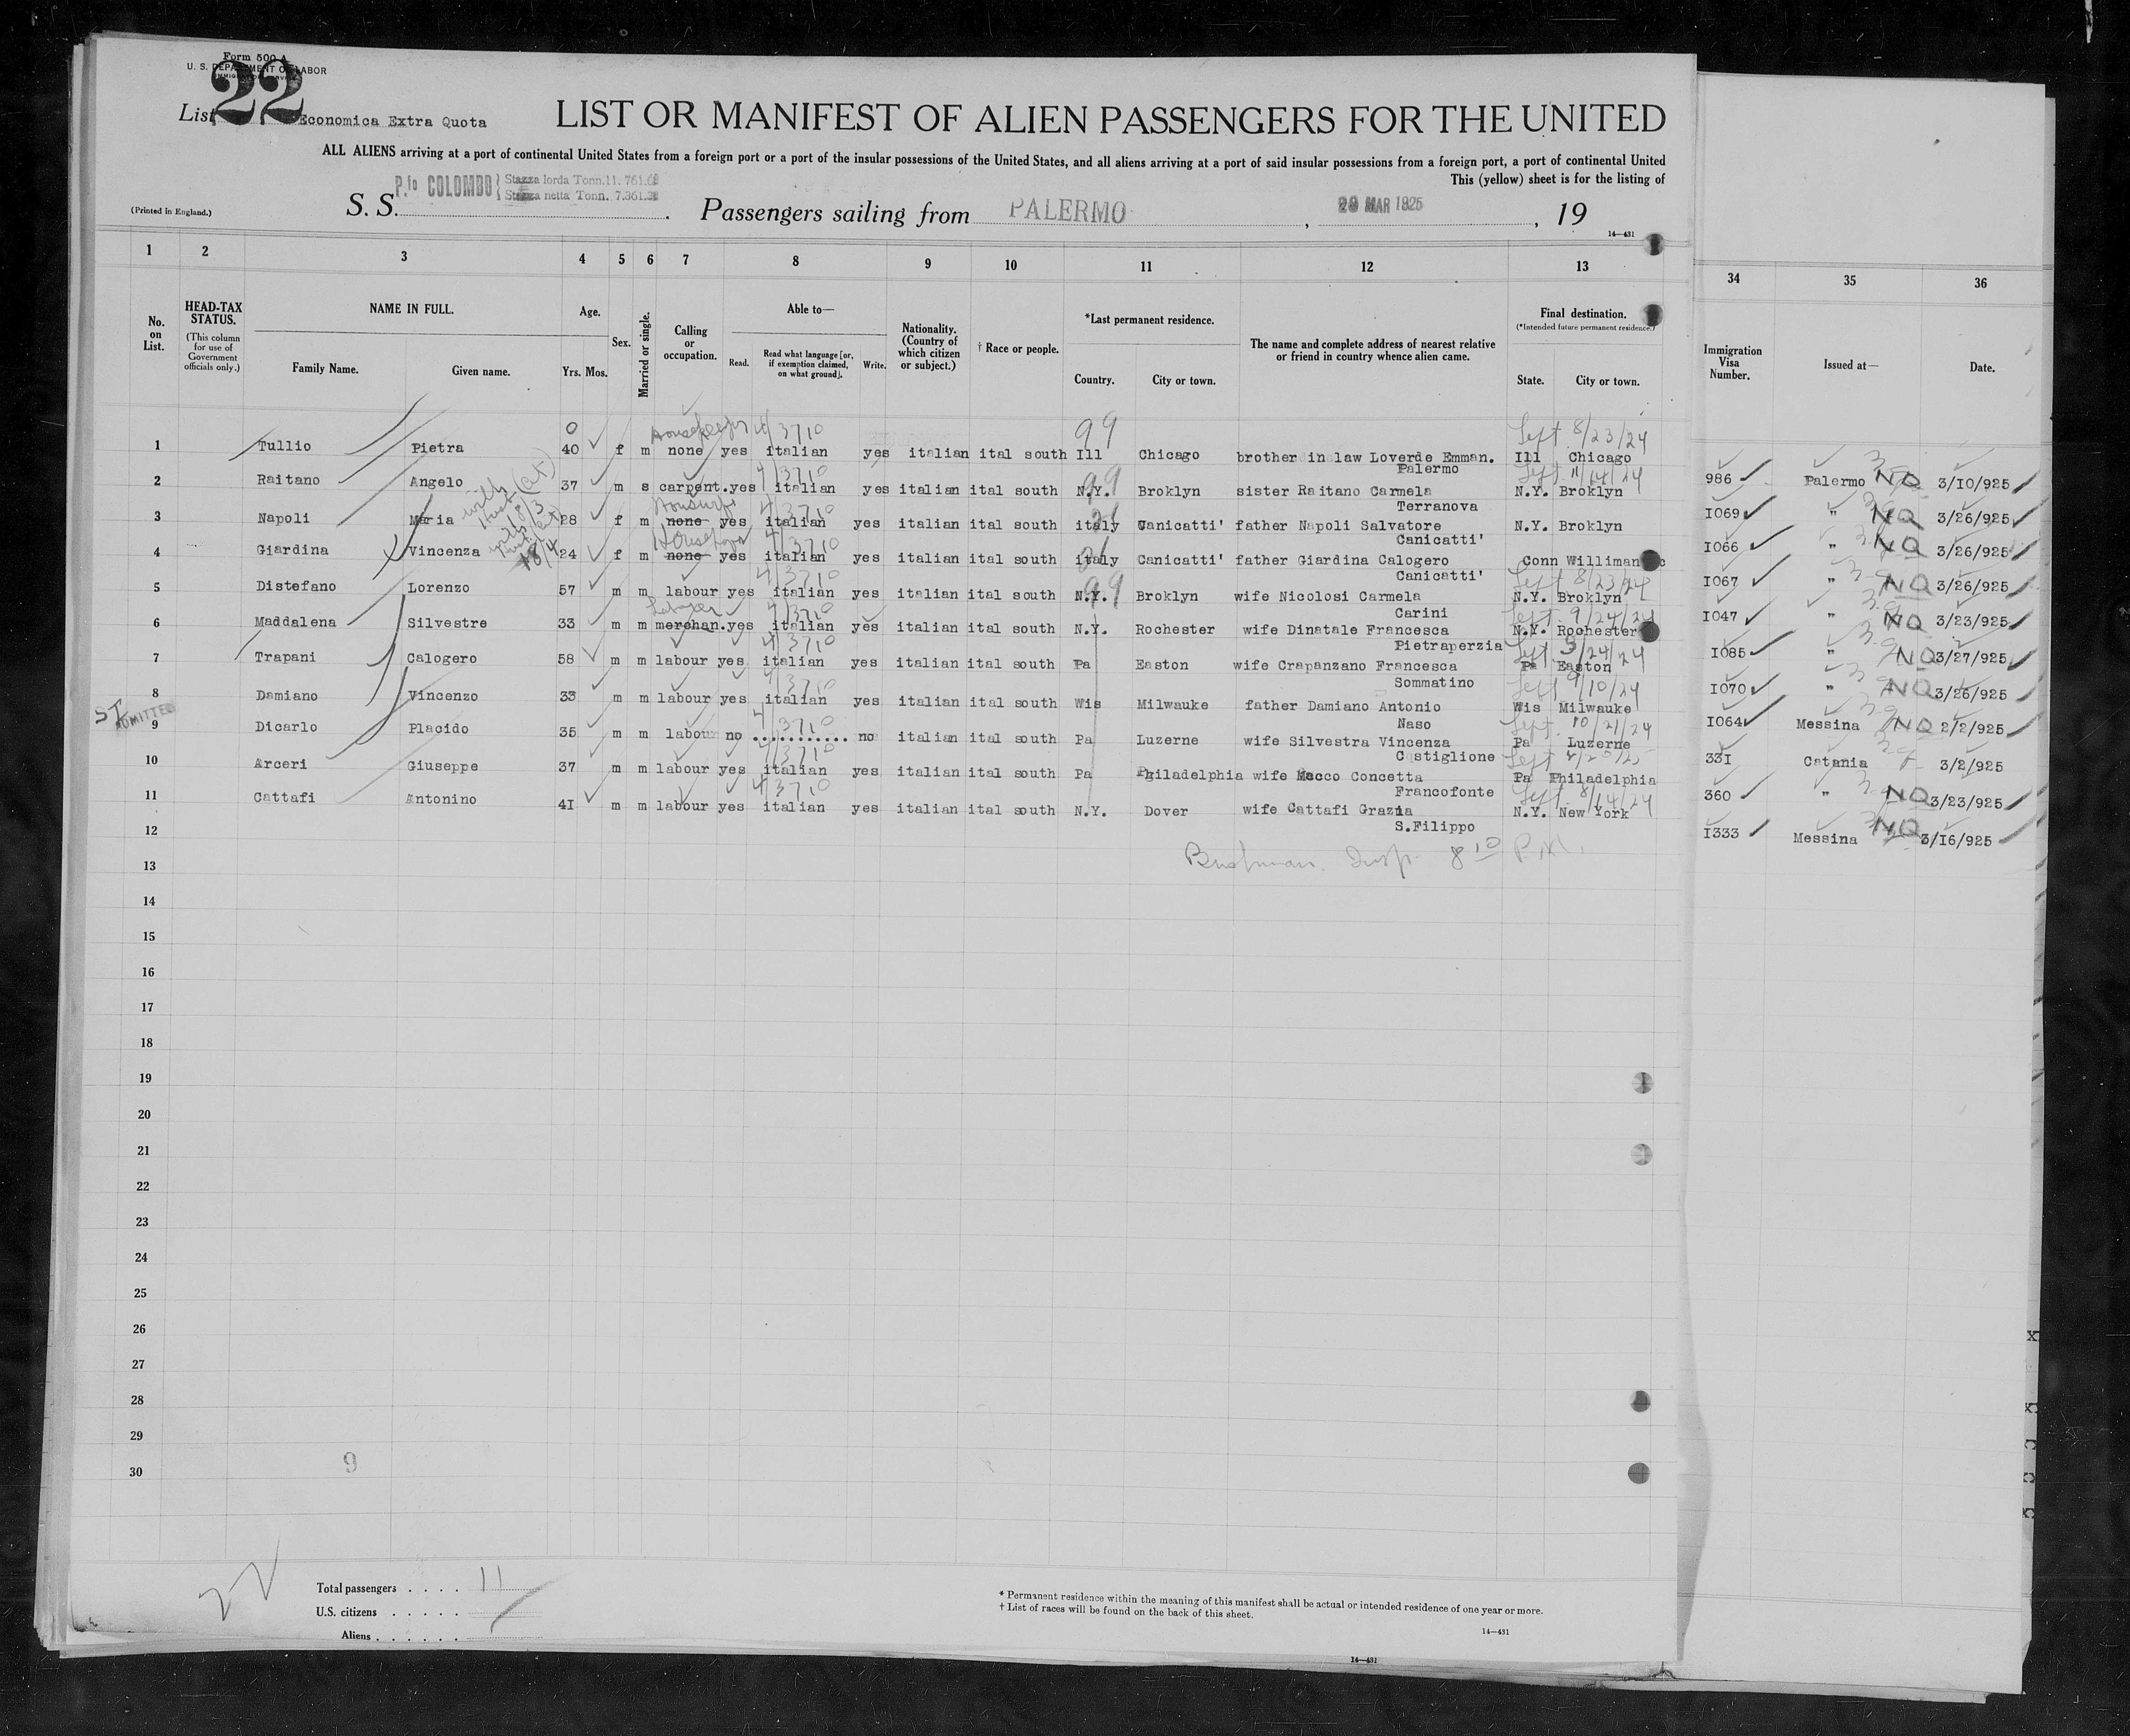 Form 500 A
U. S. DEPARTMENT OF LABOR
List 22 Economica Extra Quota
LIST OR MANIFEST OF ALIEN PASSENGERS FOR THE UNITED
ALL ALIENS arriving at a port of continental United States from a foreign port or a port of the insular possessions of the United States, and all aliens arriving at a port of said insular possessions from a foreign port, a port of continental United
This (yellow) sheet is for the listing of
(Printed in England.)
S. S. P.fo COLOMBO Stazza lorda Tonn. 11.761.
Stazza netta Tonn. 7.361.
Passengers sailing from PALERMO, 29 MAR 1925, 19
14—431
1 2 3 4 5 6 7 8 9 10 11 12 13 34 35 36
No. on List.
HEAD-TAX STATUS.
(This column for use of Government officials only.)
NAME IN FULL.
Family Name. Given name.
Age.
Yrs. Mos.
Sex.
Married or single.
Calling or occupation.
Able to—
Read. Read what language [or, if exemption claimed, on what ground]. Write.
Nationality. (Country of which citizen or subject.)
† Race or people.
*Last permanent residence.
Country. City or town.
The name and complete address of nearest relative or friend in country whence alien came.
Final destination.
(*Intended future permanent residence.)
State. City or town.
Immigration Visa Number.
Issued at—
Date.
0 Housekeeper 4/3710 99 Left 8/23/24
1 Tullio Pietra 40 f m none yes italian yes italian ital south Ill Chicago brother in law Loverde Emman. Ill Chicago 986 Palermo NQ 3/10/925
Palermo
4/3710 99 Left 11/14/24
2 Raitano Angelo 37 m s carpent. yes italian yes italian ital south N.Y. Broklyn sister Raitano Carmela N.Y. Broklyn I069 " NQ 3/26/925
Terranova
Housewife 4/3710
3 Napoli Maria 28 f m none yes italian yes italian ital south italy Canicatti' father Napoli Salvatore N.Y. Broklyn I066 " NQ 3/26/925
Canicatti'
4/3710
4 Giardina Vincenza 24 f m none yes italian yes italian ital south italy Canicatti' father Giardina Calogero Conn I067 " NQ 3/26/925
Canicatti'
4/3710 99 Left 8/23/24
5 Distefano Lorenzo 57 m m labour yes italian yes italian ital south N.Y. Broklyn wife Nicolosi Carmela N.Y. Broklyn I047 " NQ 3/23/925
Carini
Laborer 4/3710 Left 9/24/24
6 Maddalena Silvestre 33 m m merchan. yes italian yes italian ital south N.Y. Rochester wife Dinatale Francesca N.Y. Rochester I085 " NQ 3/27/925
Pietraperzia
4/3710 Left 3/24/24
7 Trapani Calogero 58 m m labour yes italian yes italian ital south Pa Easton wife Crapanzano Francesca Pa Easton I070 " NQ 3/26/925
Sommatino
4/3710 Left 9/10/24
8 Damiano Vincenzo 33 m m labour yes italian yes italian ital south Wis Milwauke father Damiano Antonio Wis Milwauke I064 Messina NQ 2/2/925
Naso
SI ADMITTED 4/3710 Left 10/21/24
9 Dicarlo Placido 35 m m labour no ........... no italian ital south Pa Luzerne wife Silvestra Vincenza Pa Luzerne 33I Catania 3/2/925
Castiglione
4/3710
10 Arceri Giuseppe 37 m m labour yes italian yes italian ital south Pa Philadelphia wife Macco Concetta Pa Philadelphia 360 " NQ 3/23/925
Francofonte
4/3710 Left 8/14/24
11 Cattafi Antonino 4I m m labour yes italian yes italian ital south N.Y. Dover wife Cattafi Grazia N.Y. New York I333 Messina NQ 3/I6/925
S.Filippo
12
Insp. 8 10 P.M.
13
14
15
16
17
18
19
20
21
22
23
24
25
26
27
28
29
30
9
22
Total passengers . . . . 11
U.S. citizens . . . . .
Aliens . . . . . .
* Permanent residence within the meaning of this manifest shall be actual or intended residence of one year or more.
† List of races will be found on the back of this sheet.
14—431
14—431